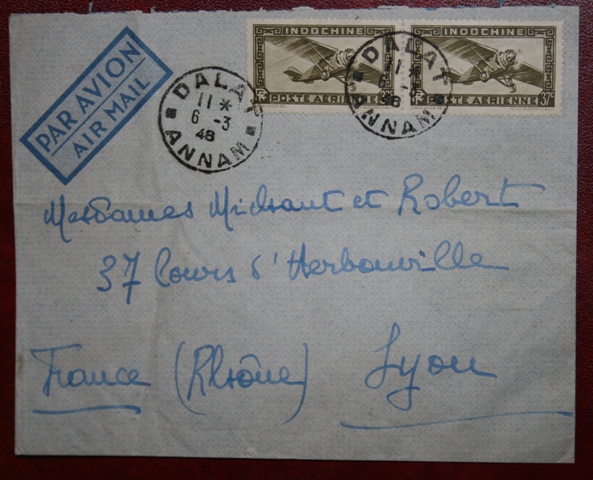 PAR AVION
AIR MAIL
INDOCHINE
RF POSTE AÉRIENNE
INDOCHINE
RF POSTE AÉRIENNE 37c
DALAT
11 *
6 -3
48
ANNAM
DALAT
11 *
6 -3
48
ANNAM
Mesdames Midrant et Robert
37 Cours d'Herbouville
France (Rhône) Lyon